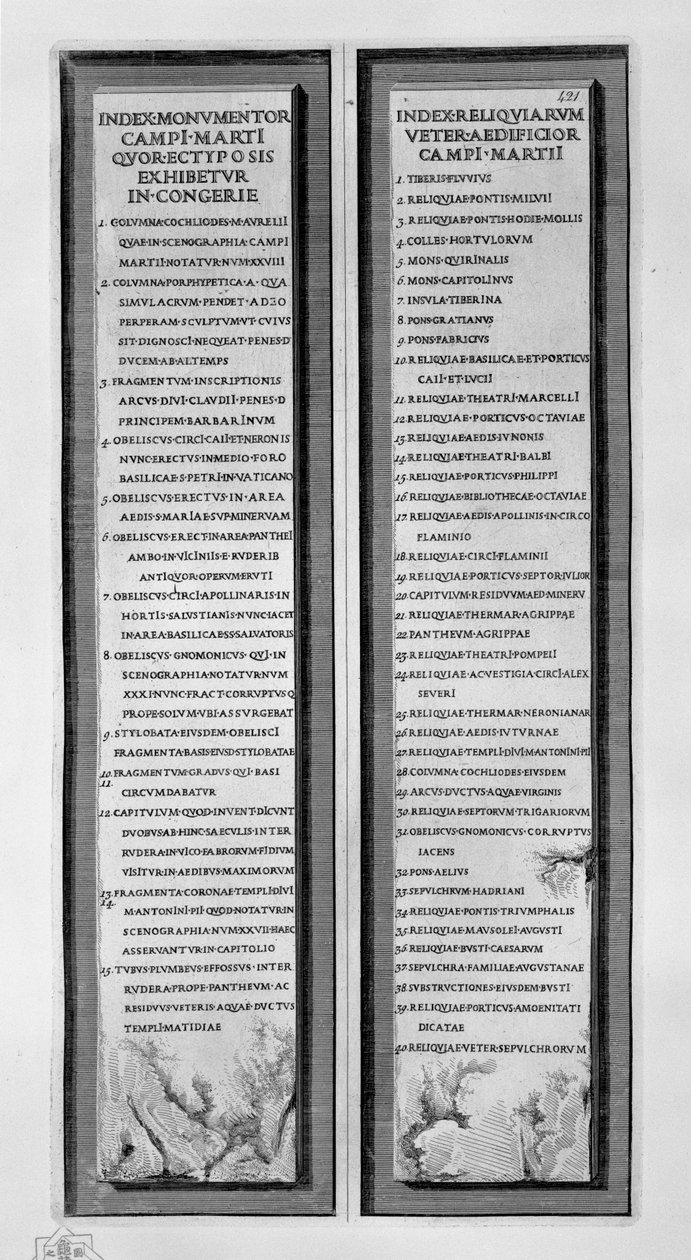 INDEX·MONVMENTOR
CAMPI·MARTI
QVOR·ECTYPOSIS
EXHIBETVR
IN·CONGERIE
1. COLVMNA·COCHLIODES·M·AVRELII
QVAE·IN·SCENOGRAPHIA·CAMPI
MARTII·NOTATVR·NVM·XXVIII
2. COLVMNA·PORPHYPETICA·A·QVA
SIMVLACRVM·PENDET·ADEO
PERPERAM·SCVLPTVM·VT·CVIVS
SIT·DIGNOSCI·NEQVEAT·PENES·D
DVCEM·AB·ALTEMPS
3. FRAGMENTVM·INSCRIPTIONIS
ARCVS·DIVI·CLAVDII·PENES·D
PRINCIPEM·BARBARINVM
4. OBELISCVS·CIRCI·CAII·ET·NERONIS
NVNC·ERECTVS·IN·MEDIO·FORO
BASILICAE·S·PETRI·IN·VATICANO
5. OBELISCVS·ERECTVS·IN·AREA
AEDIS·S·MARIAE·SVP·MINERVAM
6. OBELISCVS·ERECT·IN·AREA·PANTHEI
AMBO·IN·VICINIIS·E·RVDERIB
ANTIQVOR·OPERVM·ERVTI
7. OBELISCVS·CIRCI·APOLLINARIS·IN
HORTIS·SALVSTIANIS·NVNC·IACET
IN·AREA·BASILICAE·SS·SALVATORIS
8. OBELISCVS·GNOMONICVS·QVI·IN
SCENOGRAPHIA·NOTATVR·NVM
XXXI·NVNC·FRACT·CORRVPTVSQ
PROPE·SOLVM·VBI·ASSVRGEBAT
9. STYLOBATA·EIVSDEM·OBELISCI
FRAGMENTA·BASIS·EIVSD·STYLOBATAE
10. FRAGMENTVM·GRADVS·QVI·BASI
11. CIRCVMDABATVR
12. CAPITVLVM·QVOD·INVENT·DICVNT
DVOBVS·AB·HINC·SAECVLIS·INTER
RVDERA·IN·VICO·FABRORVM·FIDIVM
VISITVR·IN·AEDIBVS·MAXIMORVM
13. FRAGMENTA·CORONAE·TEMPLI·DIVI
14. M·ANTONINI·PII·QVOD·NOTATVR·IN
SCENOGRAPHIA·NVM·XXVII·HAEC
ASSERVANTVR·IN·CAPITOLIO
15. TVBVS·PLVMBEVS·EFFOSSVS·INTER
RVDERA·PROPE·PANTHEVM·AC
RESIDVVS·VETERIS·AQVAE·DVCTVS
TEMPLI·MATIDIAE
421
INDEX·RELIQVIARVM
VETER·AEDIFICIOR
CAMPI·MARTII
1. TIBERIS·FLVVIVS
2. RELIQVIAE·PONTIS·MILVII
3. RELIQVIAE·PONTIS·HODIE·MOLLIS
4. COLLES·HORTVLORVM
5. MONS·QVIRINALIS
6. MONS·CAPITOLINVS
7. INSVLA·TIBERINA
8. PONS·GRATIANVS
9. PONS·FABRICIVS
10. RELIQVIAE·BASILICAE·ET·PORTICVS
CAII·ET·LVCII
11. RELIQVIAE·THEATRI·MARCELLI
12. RELIQVIAE·PORTICVS·OCTAVIAE
13. RELIQVIAE·AEDIS·IVNONIS
14. RELIQVIAE·THEATRI·BALBI
15. RELIQVIAE·PORTICVS·PHILIPPI
16. RELIQVIAE·BIBLIOTHECAE·OCTAVIAE
17. RELIQVIAE·AEDIS·APOLLINIS·IN·CIRCO
FLAMINIO
18. RELIQVIAE·CIRCI·FLAMINII
19. RELIQVIAE·PORTICVS·SEPTOR·IVLIOR
20. CAPITVLVM·RESIDVVM·AED·MINERV
21. RELIQVIAE·THERMAR·AGRIPPAE
22. PANTHEVM·AGRIPPAE
23. RELIQVIAE·THEATRI·POMPEII
24. RELIQVIAE·AC·VESTIGIA·CIRCI·ALEX
SEVERI
25. RELIQVIAE·THERMAR·NERONIANAR
26. RELIQVIAE·AEDIS·IVTVRNAE
27. RELIQVIAE·TEMPLI·DIVI·M·ANTONINI·PII
28. COLVMNA·COCHLIODES·EIVSDEM
29. ARCVS·DVCTVS·AQVAE·VIRGINIS
30. RELIQVIAE·SEPTORVM·TRIGARIORVM
31. OBELISCVS·GNOMONICVS·CORRVPTVS
IACENS
32. PONS·AELIVS
33. SEPVLCHRVM·HADRIANI
34. RELIQVIAE·PONTIS·TRIVMPHALIS
35. RELIQVIAE·MAVSOLEI·AVGVSTI
36. RELIQVIAE·BVSTI·CAESARVM
37. SEPVLCHRA·FAMILIAE·AVGVSTANAE
38. SVBSTRVCTIONES·EIVSDEM·BVSTI
39. RELIQVIAE·PORTICVS·AMOENITATI
DICATAE
40. RELIQVIAE·VETER·SEPVLCHRORVM